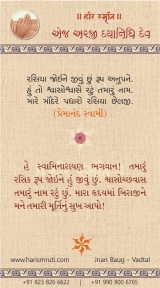 ॥ હરિ સ્મૃતિ ॥
એજ અરજી દયાનિધિ દેવ
રસિયા જોઈને જીવું છું રૂપ અનુપને.
હું તો શ્વાસોશ્વાસે રટું તમારું નામ.
મારે મંદિરે પધારો રસિયા છેલજી.
(પ્રેમાનંદ સ્વામી)
હે સ્વામિનારાયણ ભગવાન! તમારું
રસિક રૂપ જોઈને હું જીવું છું. શ્વાસોચ્છવાસ
તમારું નામ રટું છું. મારા હૃદયમાં બિરાજીને
મને તમારી મૂર્તિનું સુખ આપો!
www.harismruti.com Jnan Baug - Vadtal
+91 823 826 6622 | +91 990 900 6765